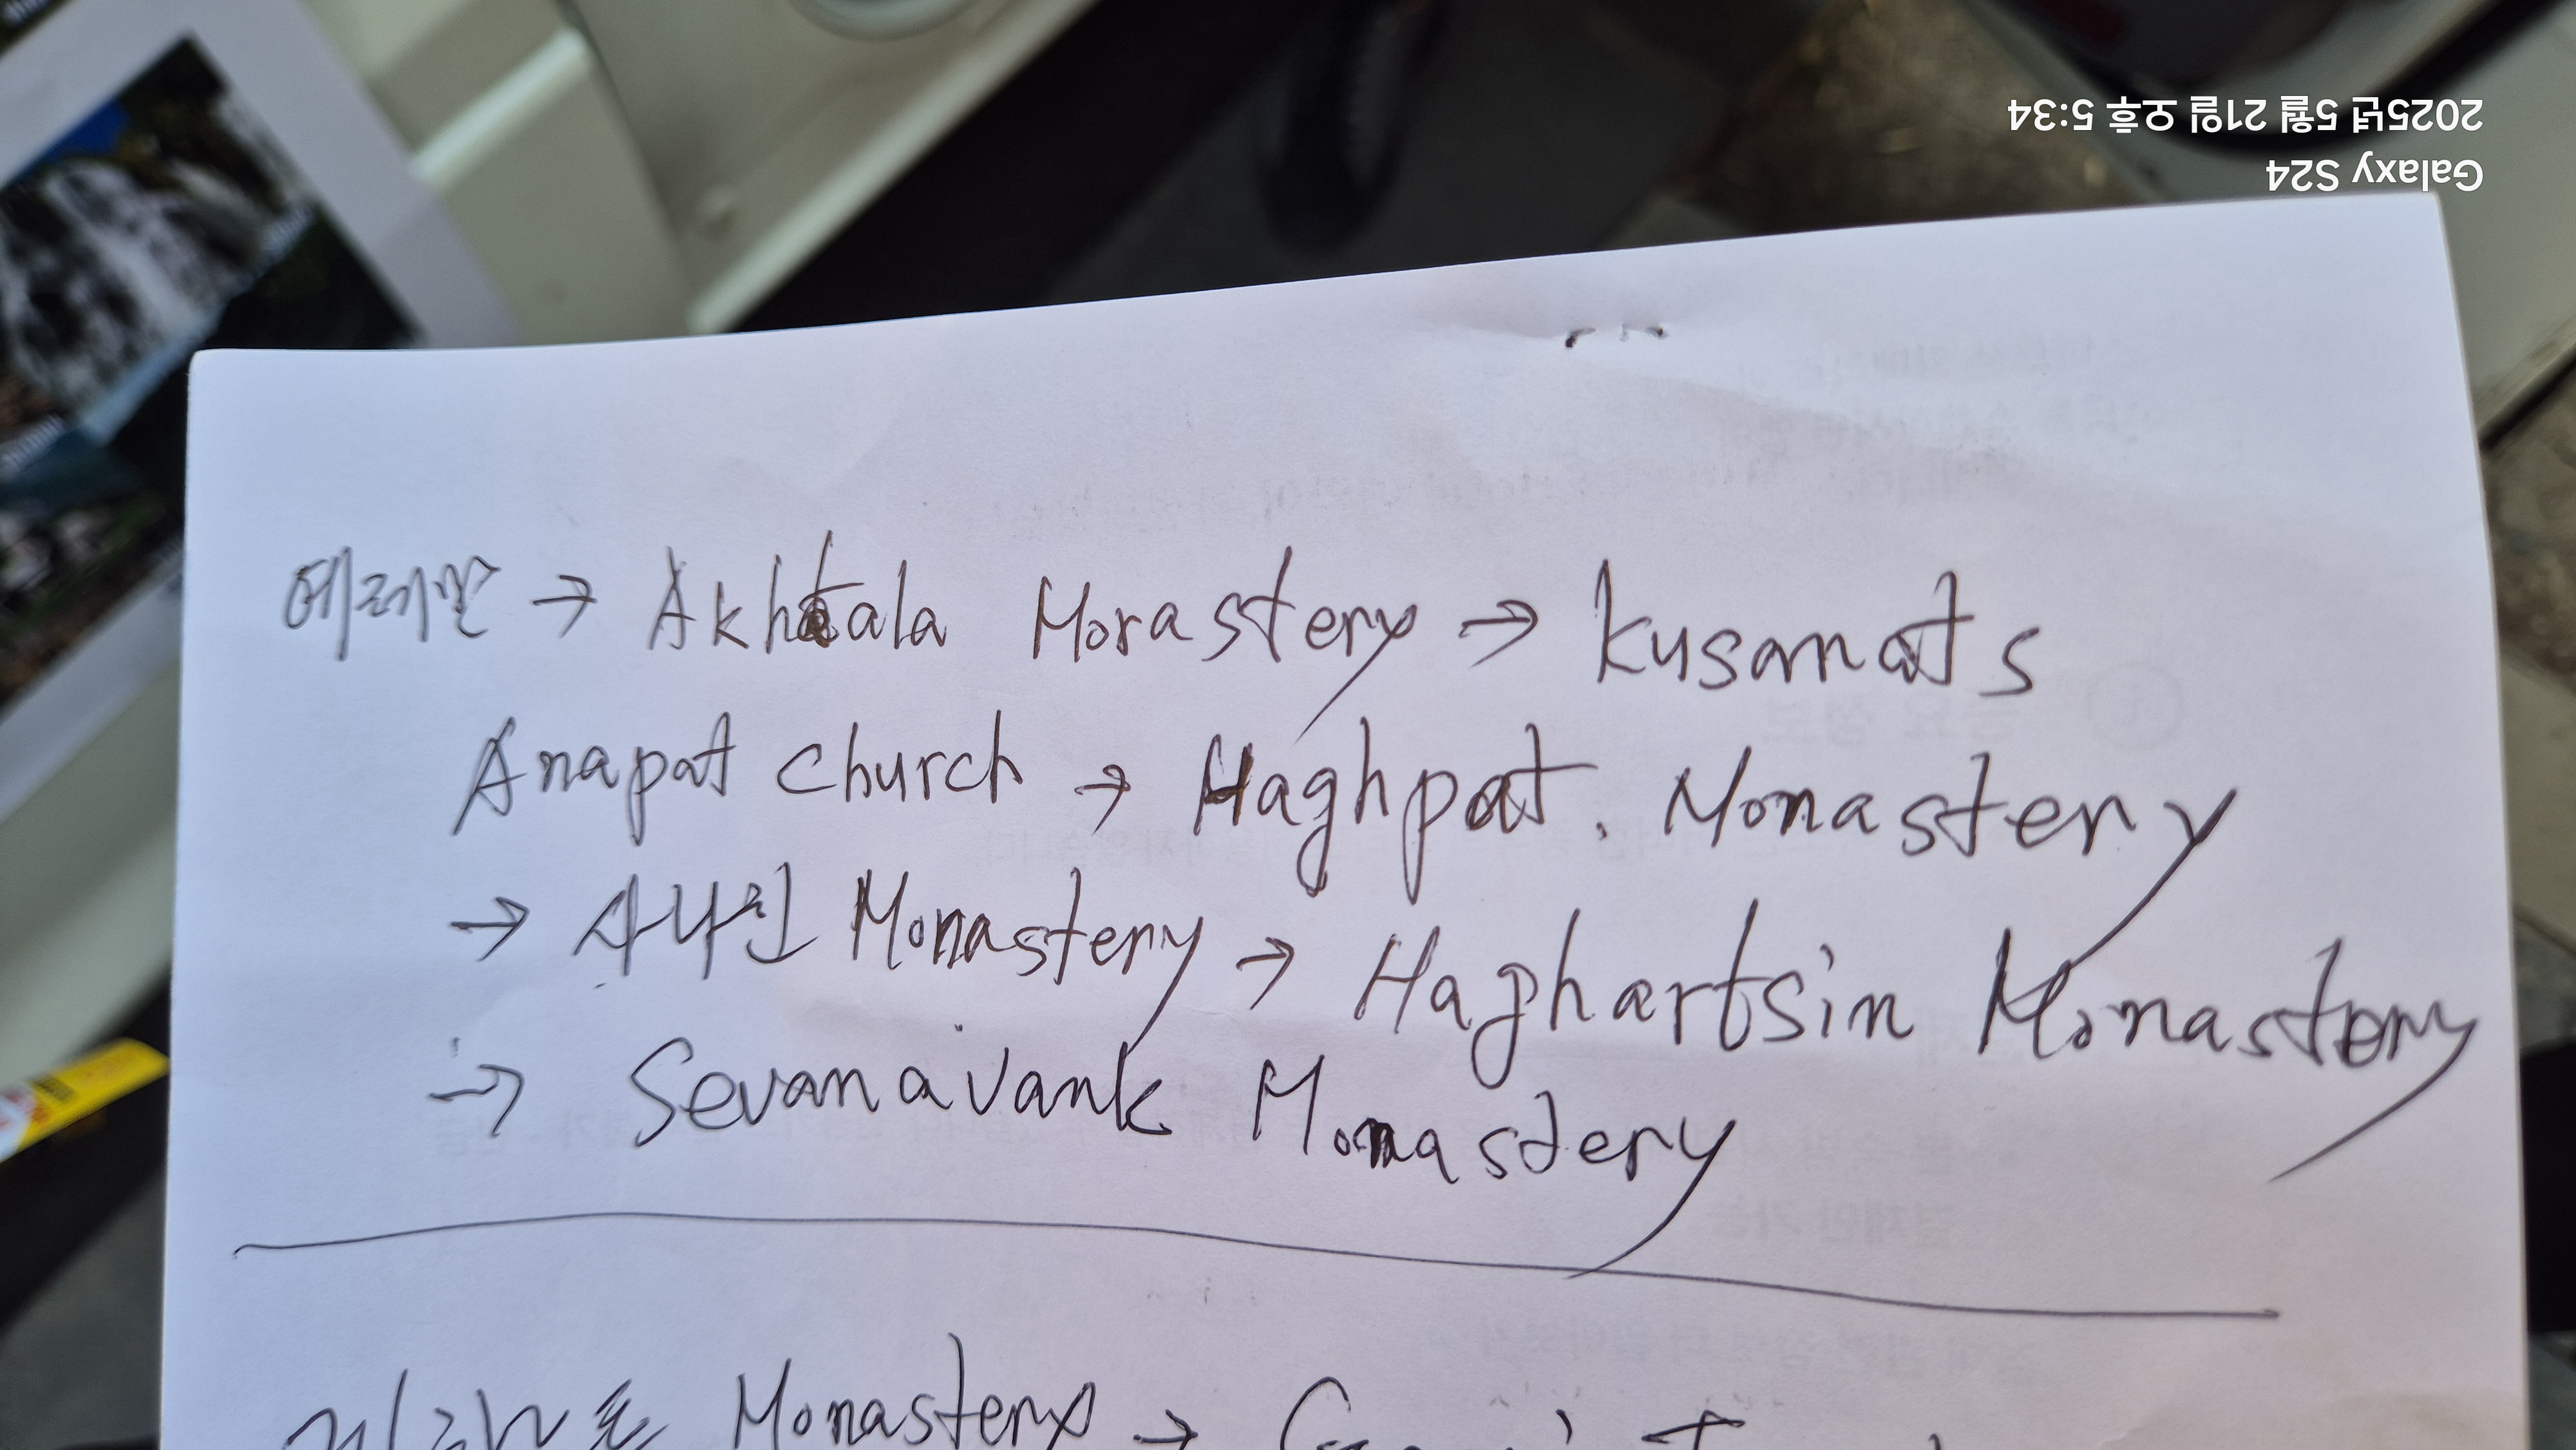 2025년 5월 21일 오후 5:34
Galaxy S24
예레반 → Akhtala Monastery → Kusanats
Anapat church → Haghpat. Monastery
→ 사나힌 Monastery → Haghartsin Monastery
→ Sevanavank Monastery
Monastery →